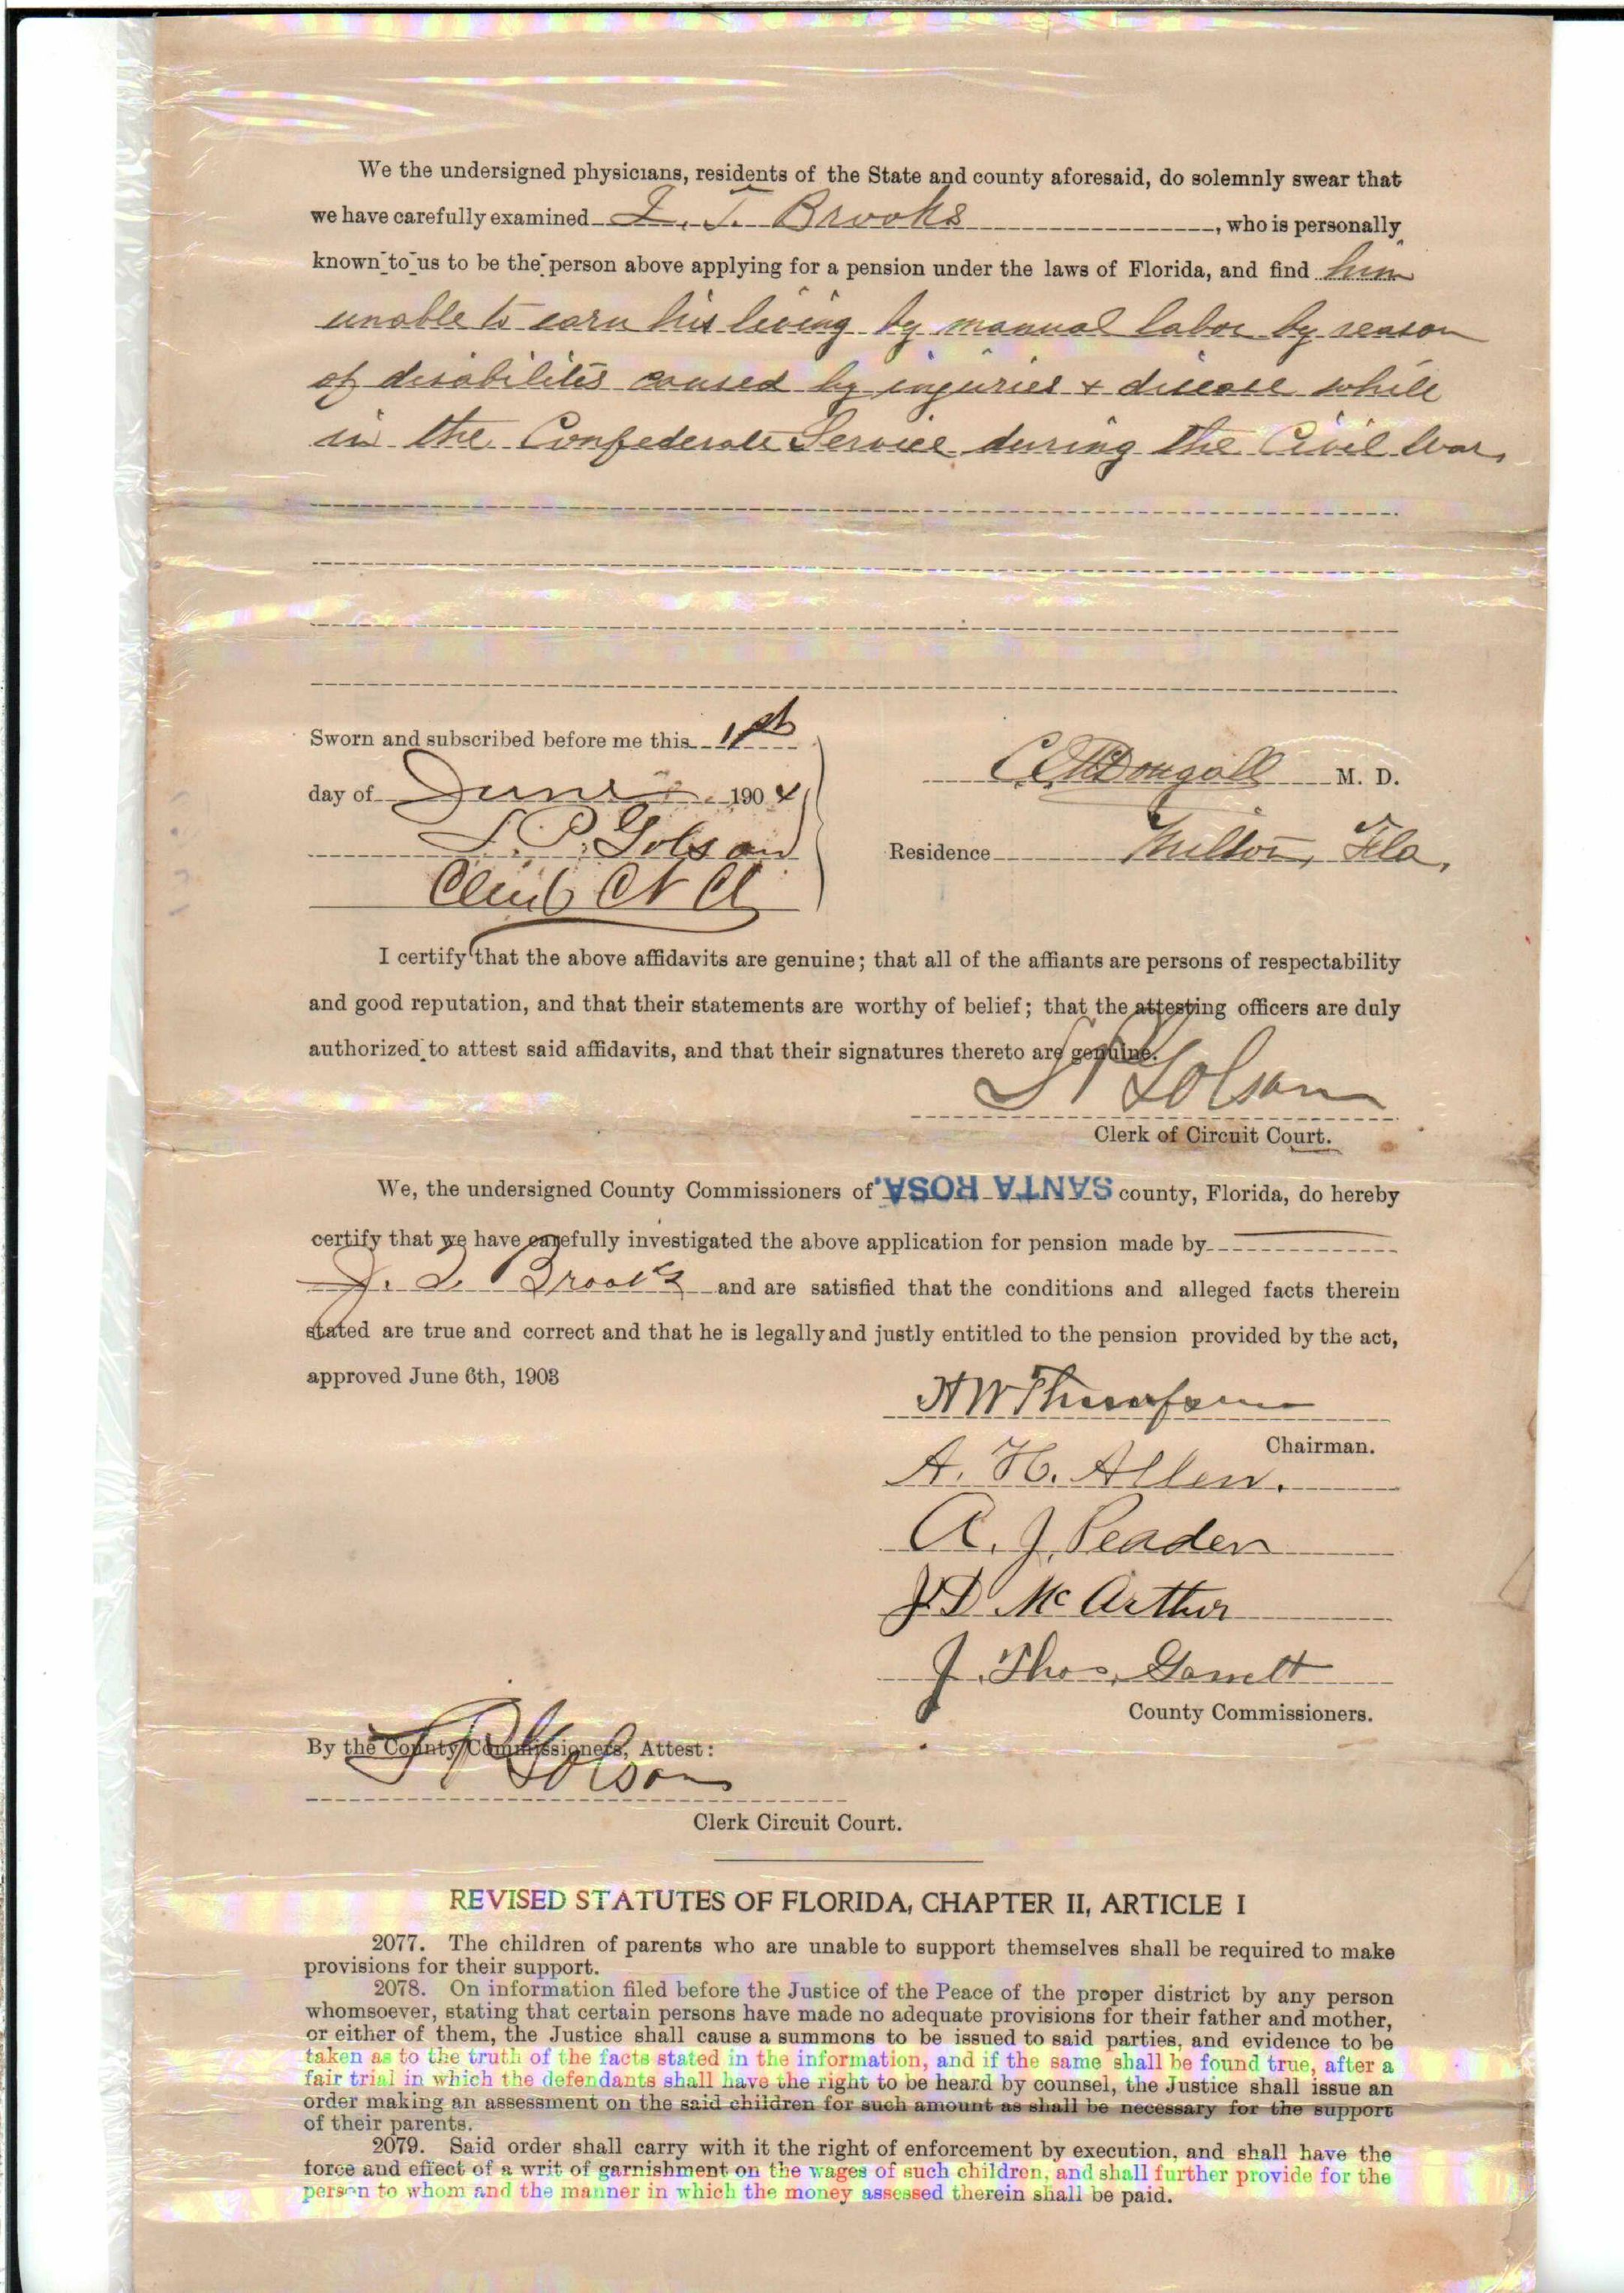 We the undersigned physicians, residents of the State and county aforesaid, do solemnly swear that
we have carefully examined J. T. Brooks, who is personally
known to us to be the person above applying for a pension under the laws of Florida, and find him
unable to earn his living by manual labor by reason
of disabilities caused by injuries & disease while
in the Confederate Service during the Civil War,
Sworn and subscribed before me this 1st
day of June 1904
C. E. McDougall M. D.
S. P. Golson
Residence Milton, Fla,
Clerk
I certify that the above affidavits are genuine; that all of the affiants are persons of respectability
and good reputation, and that their statements are worthy of belief; that the attesting officers are duly
authorized to attest said affidavits, and that their signatures thereto are genuine.
S P Golson
Clerk of Circuit Court.
We, the undersigned County Commissioners of SANTA ROSA. county, Florida, do hereby
certify that we have carefully investigated the above application for pension made by
Brooks and are satisfied that the conditions and alleged facts therein
stated are true and correct and that he is legally and justly entitled to the pension provided by the act,
approved June 6th, 1903
H W Thompson
Chairman.
A. H. Allen.
A. J. Peaden
J. D McArthur
J. Thos. Garrett
County Commissioners.
By the County Commissioners, Attest:
S P Golson
Clerk Circuit Court.
REVISED STATUTES OF FLORIDA, CHAPTER II, ARTICLE I
2077. The children of parents who are unable to support themselves shall be required to make
provisions for their support.
2078. On information filed before the Justice of the Peace of the proper district by any person
whomsoever, stating that certain persons have made no adequate provisions for their father and mother,
or either of them, the Justice shall cause a summons to be issued to said parties, and evidence to be
taken as to the truth of the facts stated in the information, and if the same shall be found true, after a
fair trial in which the defendants shall have the right to be heard by counsel, the Justice shall issue an
order making an assessment on the said children for such amount as shall be necessary for the support
of their parents.
2079. Said order shall carry with it the right of enforcement by execution, and shall have the
force and effect of a writ of garnishment on the wages of such children, and shall further provide for the
person to whom and the manner in which the money assessed therein shall be paid.